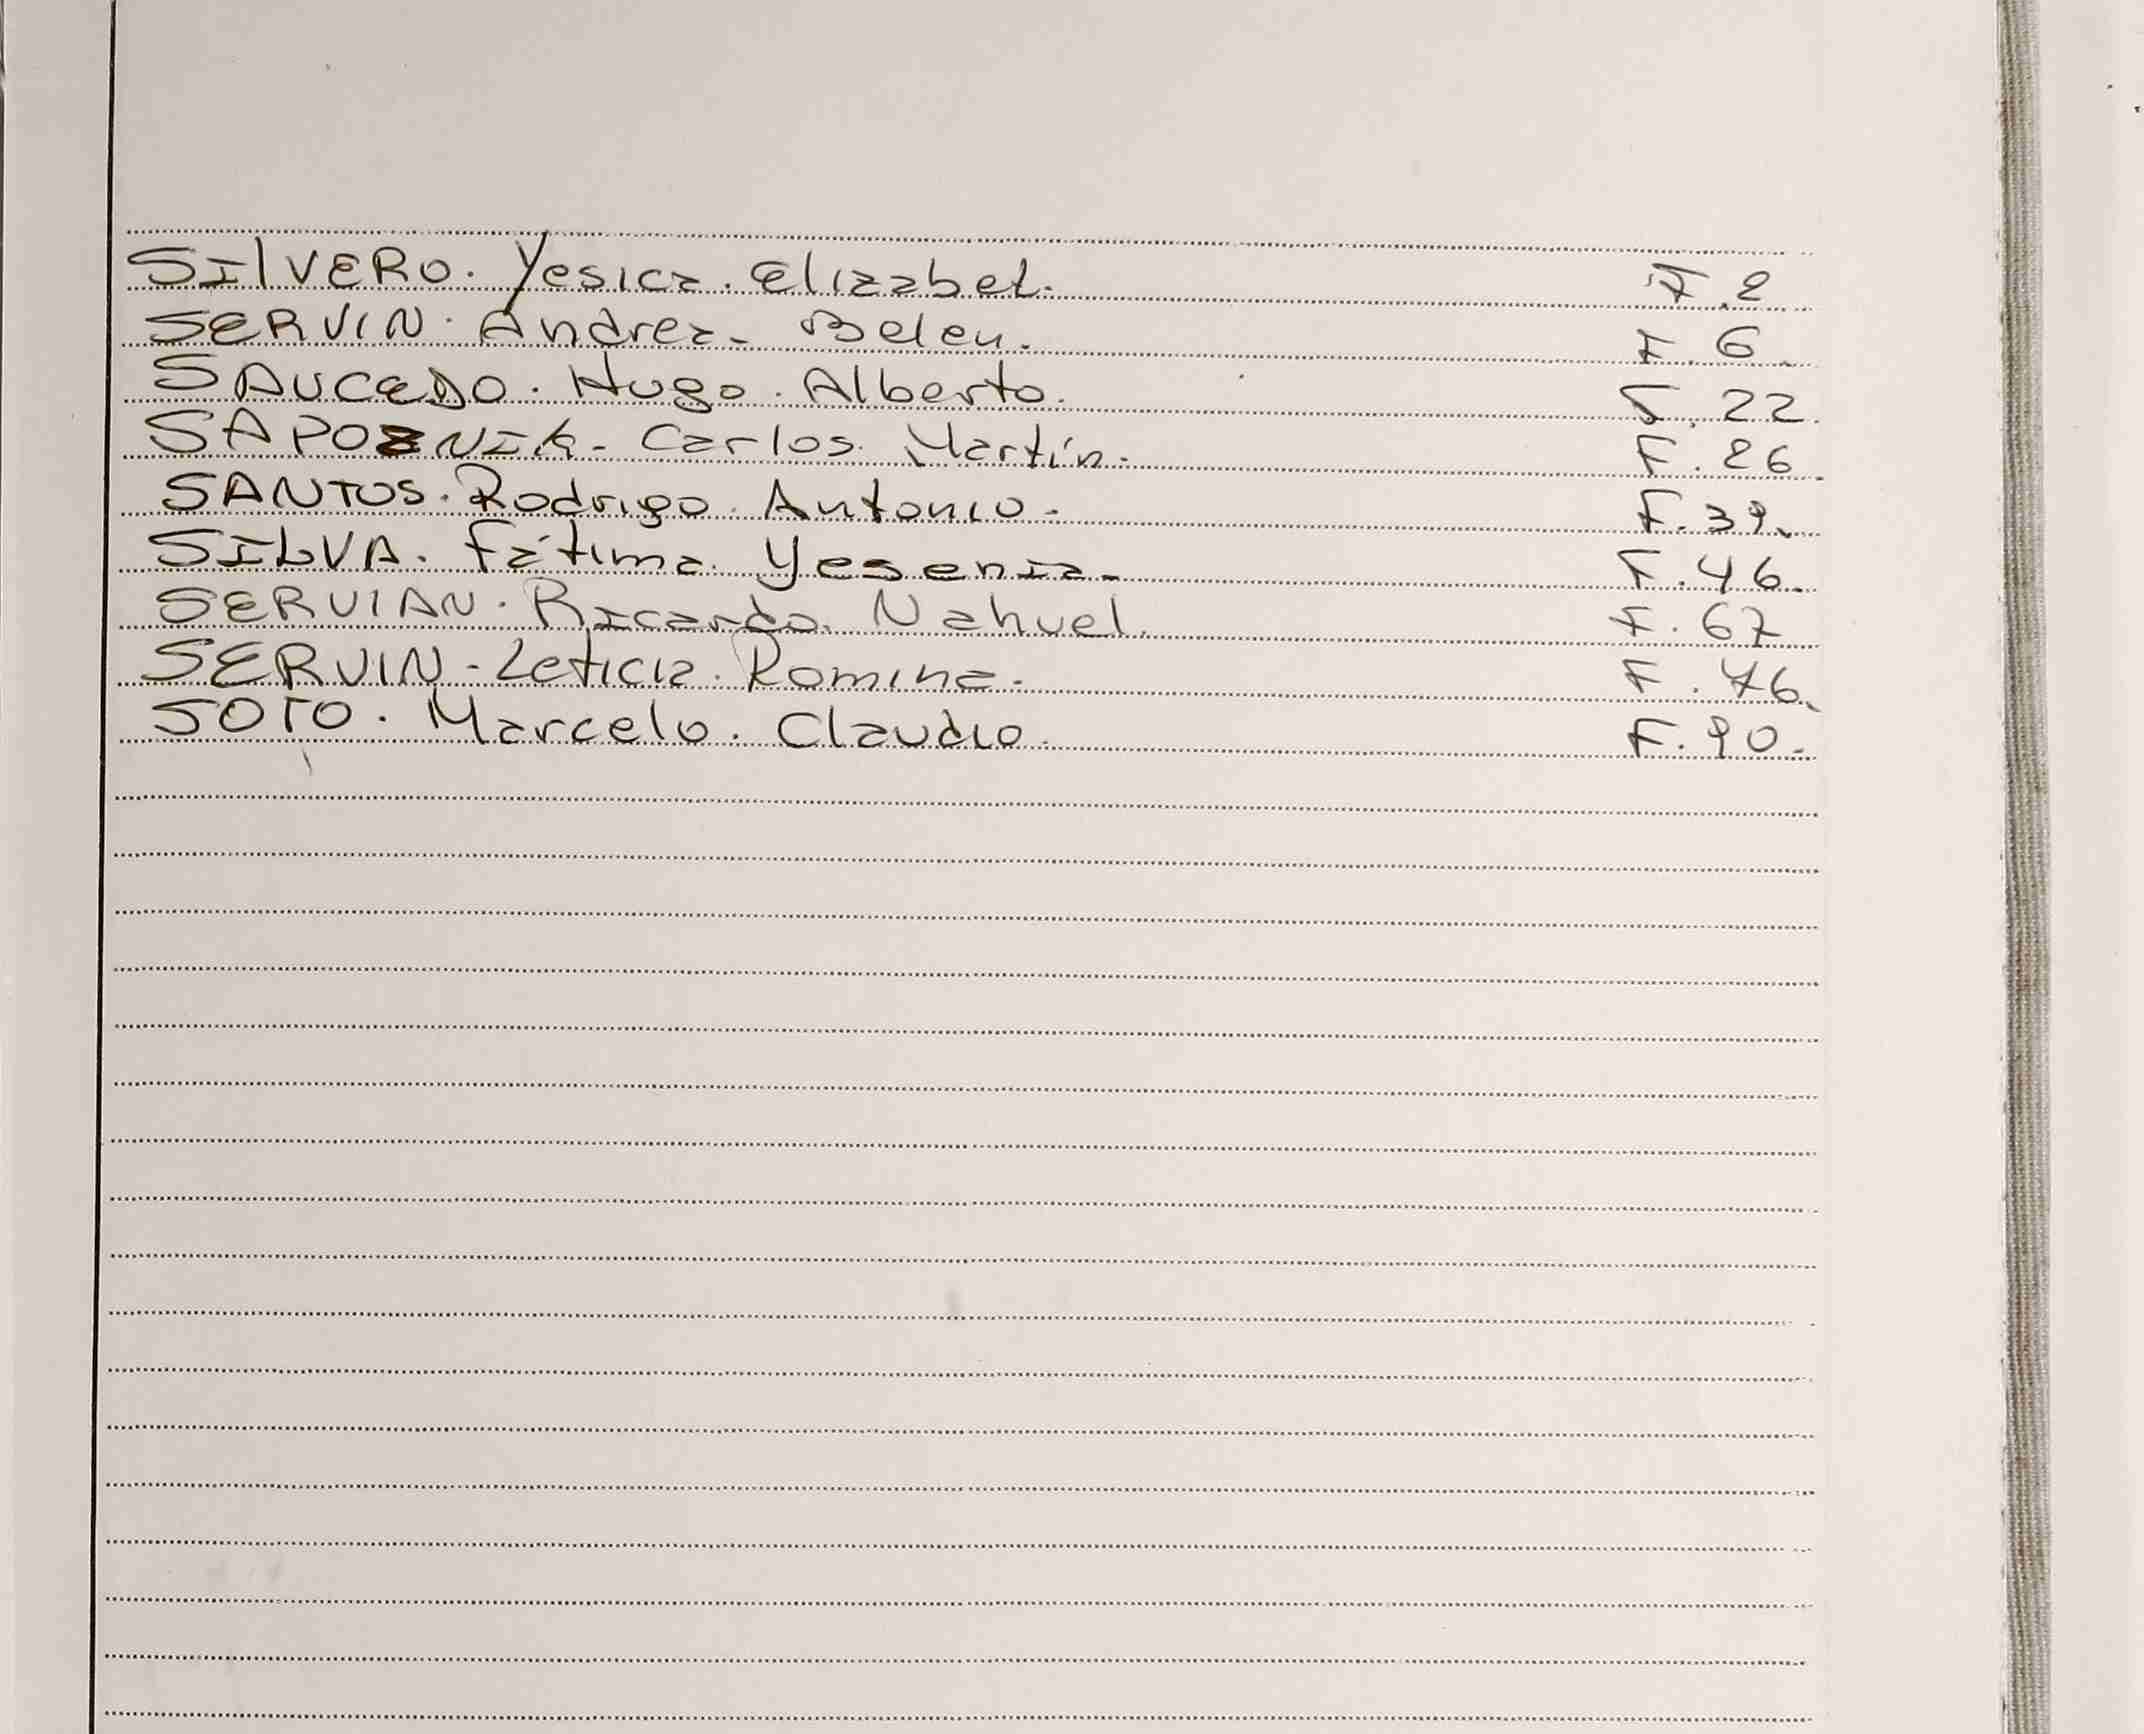 SIlVERO. Yesica. Elizabet. F.2
SERVIN. Andrea. Belen. F.6.
SAUCEDO. Hugo. Alberto. F.22.
SAPOZNIK- Carlos. Martín. F.26.
SANTOS. Rodrigo. Antonio. F.39.
SILVA. Fátima. Yesenia. F.46.
SERVIAN. Ricardo. Nahuel. F.67
SERVIN- Leticia. Romina. F.76.
SOTO. Marcelo. Claudio. F.90.